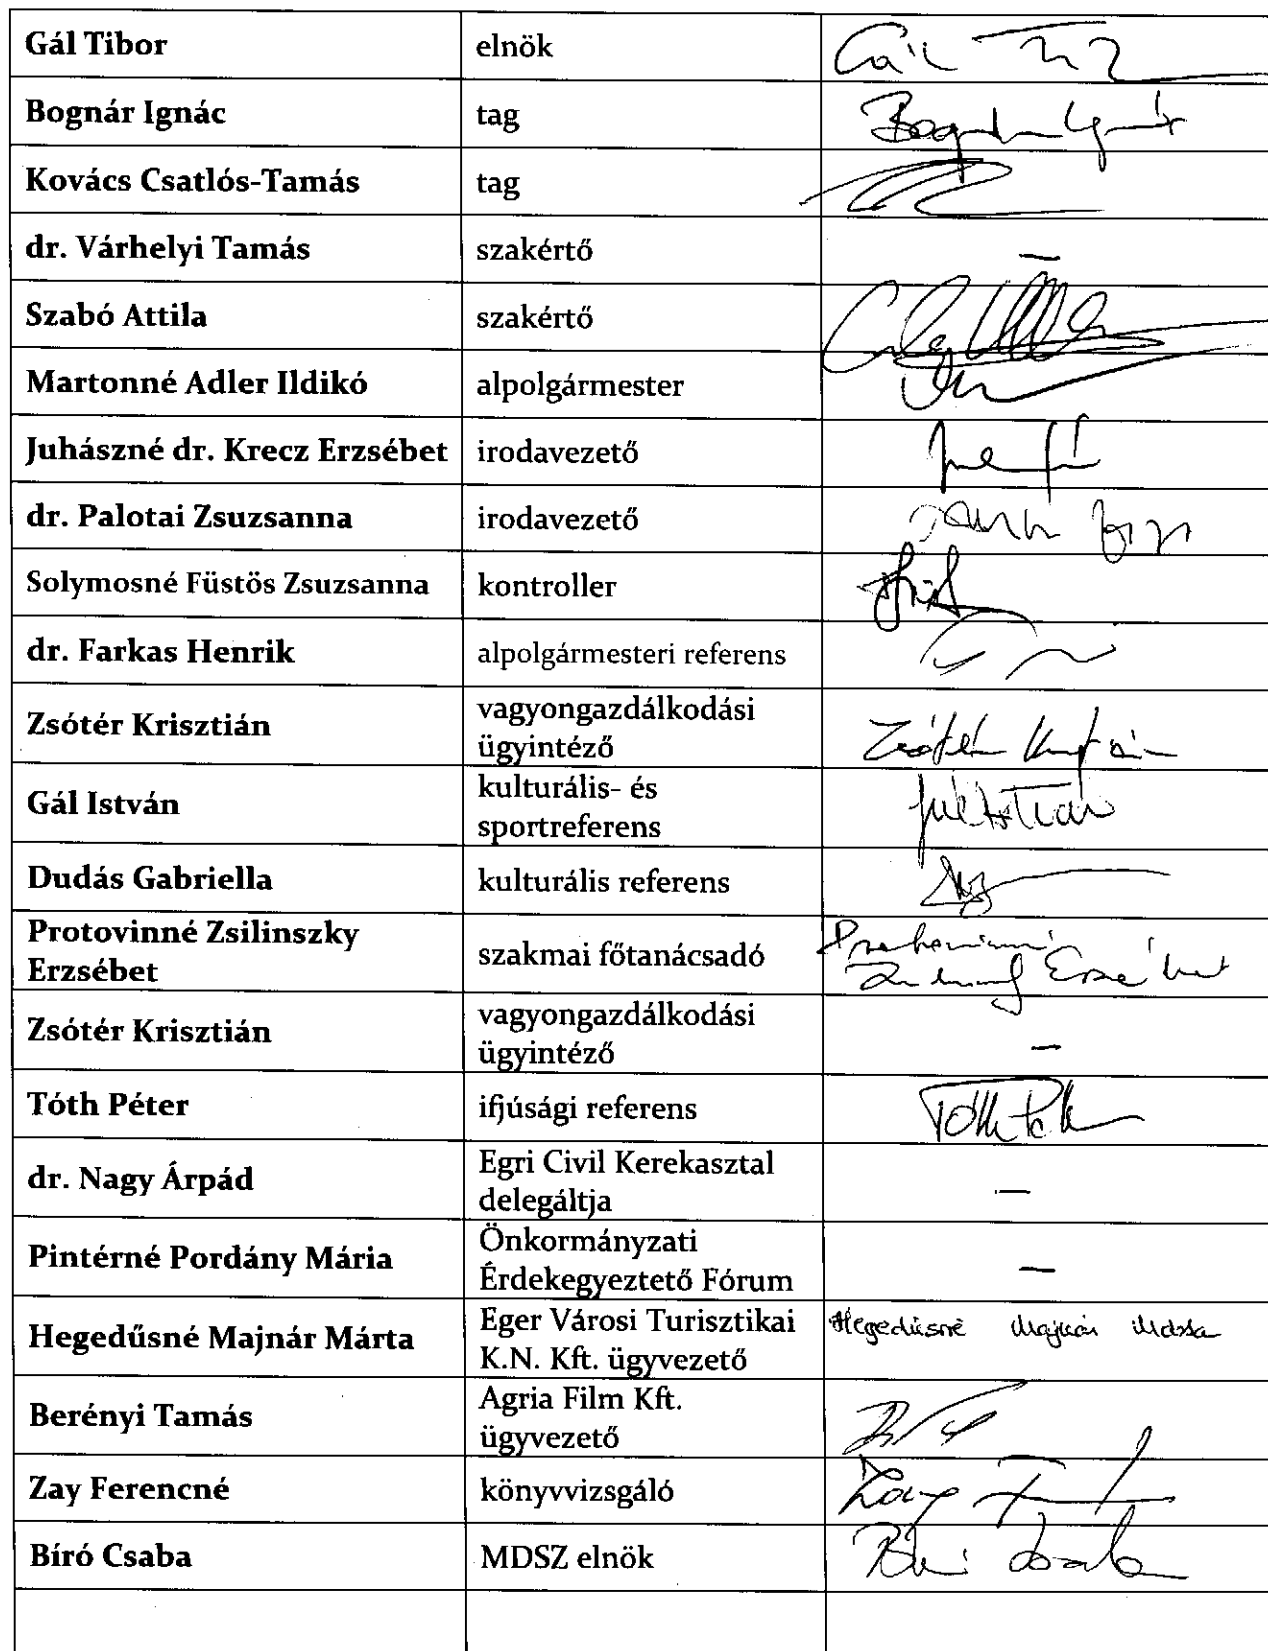 Gál Tibor elnök Gál Tibor
Bognár Ignác tag Bognár Ignác
Kovács Csatlós-Tamás tag
dr. Várhelyi Tamás szakértő –
Szabó Attila szakértő
Martonné Adler Ildikó alpolgármester
Juhászné dr. Krecz Erzsébet irodavezető
dr. Palotai Zsuzsanna irodavezető
Solymosné Füstös Zsuzsanna kontroller
dr. Farkas Henrik alpolgármesteri referens
Zsótér Krisztián vagyongazdálkodási
ügyintéző Zsótér Krisztián
Gál István kulturális- és
sportreferens Gál István
Dudás Gabriella kulturális referens
Protovinné Zsilinszky
Erzsébet szakmai főtanácsadó Erzsébet
Zsótér Krisztián vagyongazdálkodási
ügyintéző –
Tóth Péter ifjúsági referens Tóth Péter
dr. Nagy Árpád Egri Civil Kerekasztal
delegáltja –
Pintérné Pordány Mária Önkormányzati
Érdekegyeztető Fórum –
Hegedűsné Majnár Márta Eger Városi Turisztikai
K.N. Kft. ügyvezető Hegedűsné Majnár Márta
Berényi Tamás Agria Film Kft.
ügyvezető
Zay Ferencné könyvvizsgáló Zay
Bíró Csaba MDSZ elnök Bíró Csaba